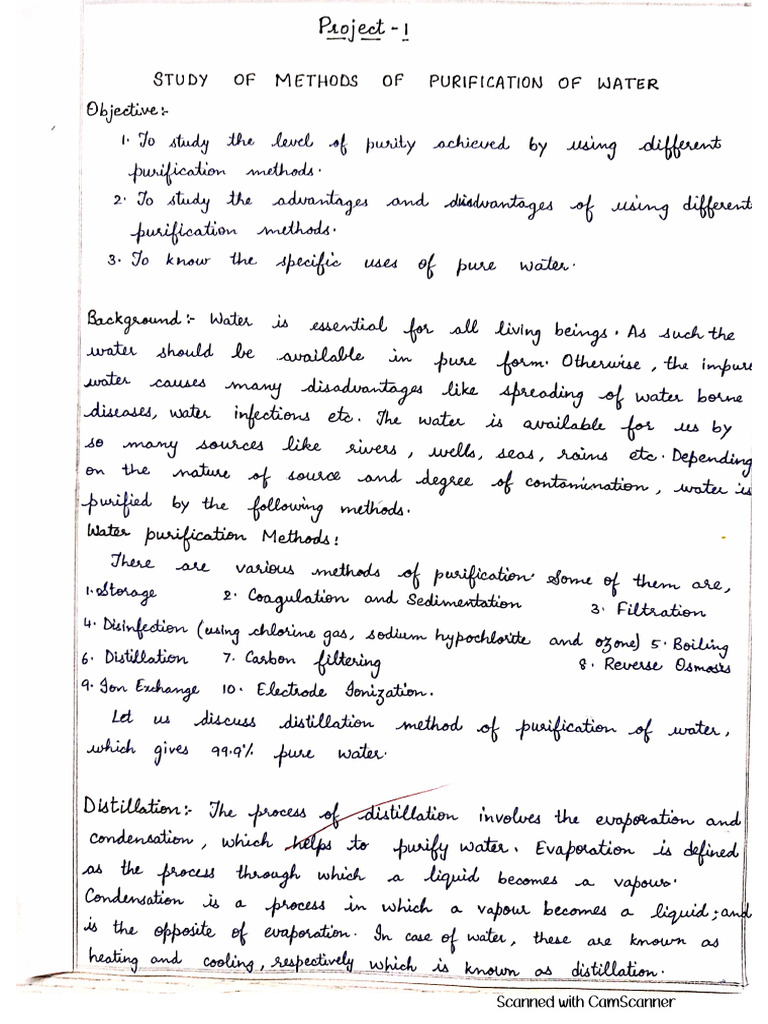 Project - 1
STUDY OF METHODS OF PURIFICATION OF WATER
Objective:-
1. To study the level of purity achieved by using different
purification methods.
2. To study the advantages and disadvantages of using different
purification methods.
3. To know the specific uses of pure water.
Background:- Water is essential for all living beings. As such the
water should be available in pure form. Otherwise, the impure
water causes many disadvantages like spreading of water borne
diseases, water infections etc. The water is available for us by
so many sources like rivers, wells, seas, rains etc. Depending
on the nature of source and degree of contamination, water is
purified by the following methods.
Water purification Methods:
There are various methods of purification. Some of them are,
1. Storage 2. Coagulation and Sedimentation 3. Filtration
4. Disinfection (using chlorine gas, sodium hypochlorite and ozone) 5. Boiling
6. Distillation 7. Carbon filtering 8. Reverse Osmosis
9. Ion Exchange 10. Electrode Ionization.
Let us discuss distillation method of purification of water,
which gives 99.9% pure water.
Distillation:- The process of distillation involves the evaporation and
condensation, which helps to purify water. Evaporation is defined
as the process through which a liquid becomes a vapour.
Condensation is a process in which a vapour becomes a liquid; and
is the opposite of evaporation. In case of water, these are known as
heating and cooling, respectively which is known as distillation.
Scanned with CamScanner